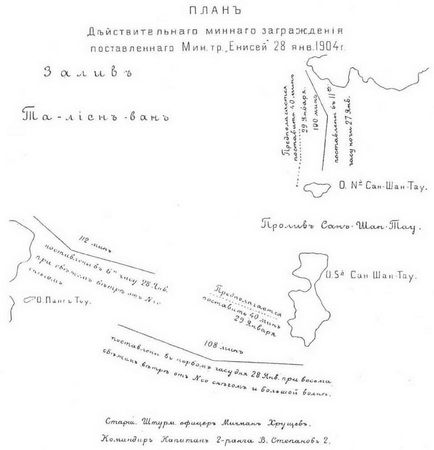 ПЛАНЪ
Дѣйствительнаго миннаго загражденія
поставленнаго Мин. тр. „Енисей" 28 янв. 1904 г.
Заливъ
Та-ліенъ-ванъ
Предполагается
поставить 40 минъ
29 Января
120 минъ
поставлены въ 11й
часу ночи 27 Янв.
О. Nd Санъ-Шанъ-Тау.
Проливъ Санъ-Шанъ-Тау.
112 минъ
поставлены въ 6мъ часу 28 Янв.
при свѣжемъ вѣтрѣ отъ N со
снѣгомъ
О. Пангъ Ту.
Предполагается
поставить 40 минъ
29 Января
О. Sd Сан Шан-Тау.
108 минъ
поставлены въ первомъ часу дня 28 Янв. при весьма
свѣжемъ вѣтрѣ отъ N со снѣгомъ и большой волнѣ.
Старш. Штурм. офицеръ Мичманъ Хрущевъ.
Командиръ Капитанъ 2-ранга В. Степановъ 2.